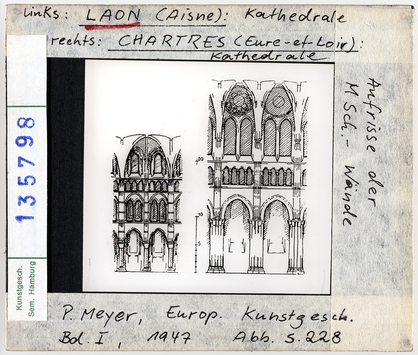 links: LAON (Aisne): Kathedrale
rechts: CHARTRES (Eure-et-Loir):
Kathedrale
Aufrisse der
M Sch.- Wände
135798
Kunstgesch.
Sem. Hamburg
20
10
5
P. Meyer, Europ. Kunstgesch.
Bd. I, 1947 Abb. S. 228